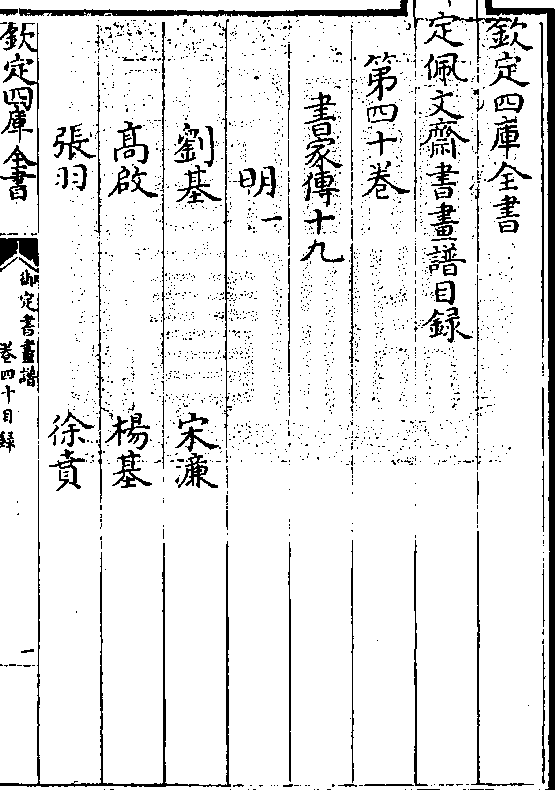 欽定四庫全書
定佩文齋書畫譜目録
第四十卷
書家傳十九
明一
劉基 宋濂
高啟 楊基
張羽 徐賁
欽定四庫全書
御定書畫譜
卷四十目録
一